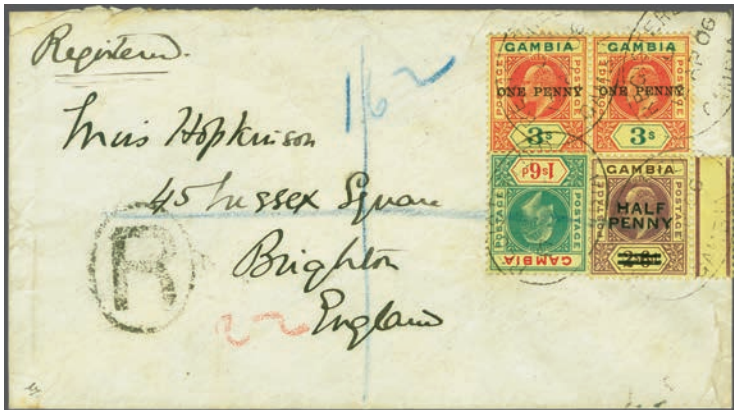 Registered.
162
Miss Hopkinson
45 Sussex Square
Brighton
England
R
22
GAMBIA
POSTAGE POSTAGE
ONE PENNY
3s
GAMBIA
POSTAGE POSTAGE
ONE PENNY
3s
GAMBIA
POSTAGE POSTAGE
1s6d
GAMBIA
POSTAGE POSTAGE
HALF
PENNY